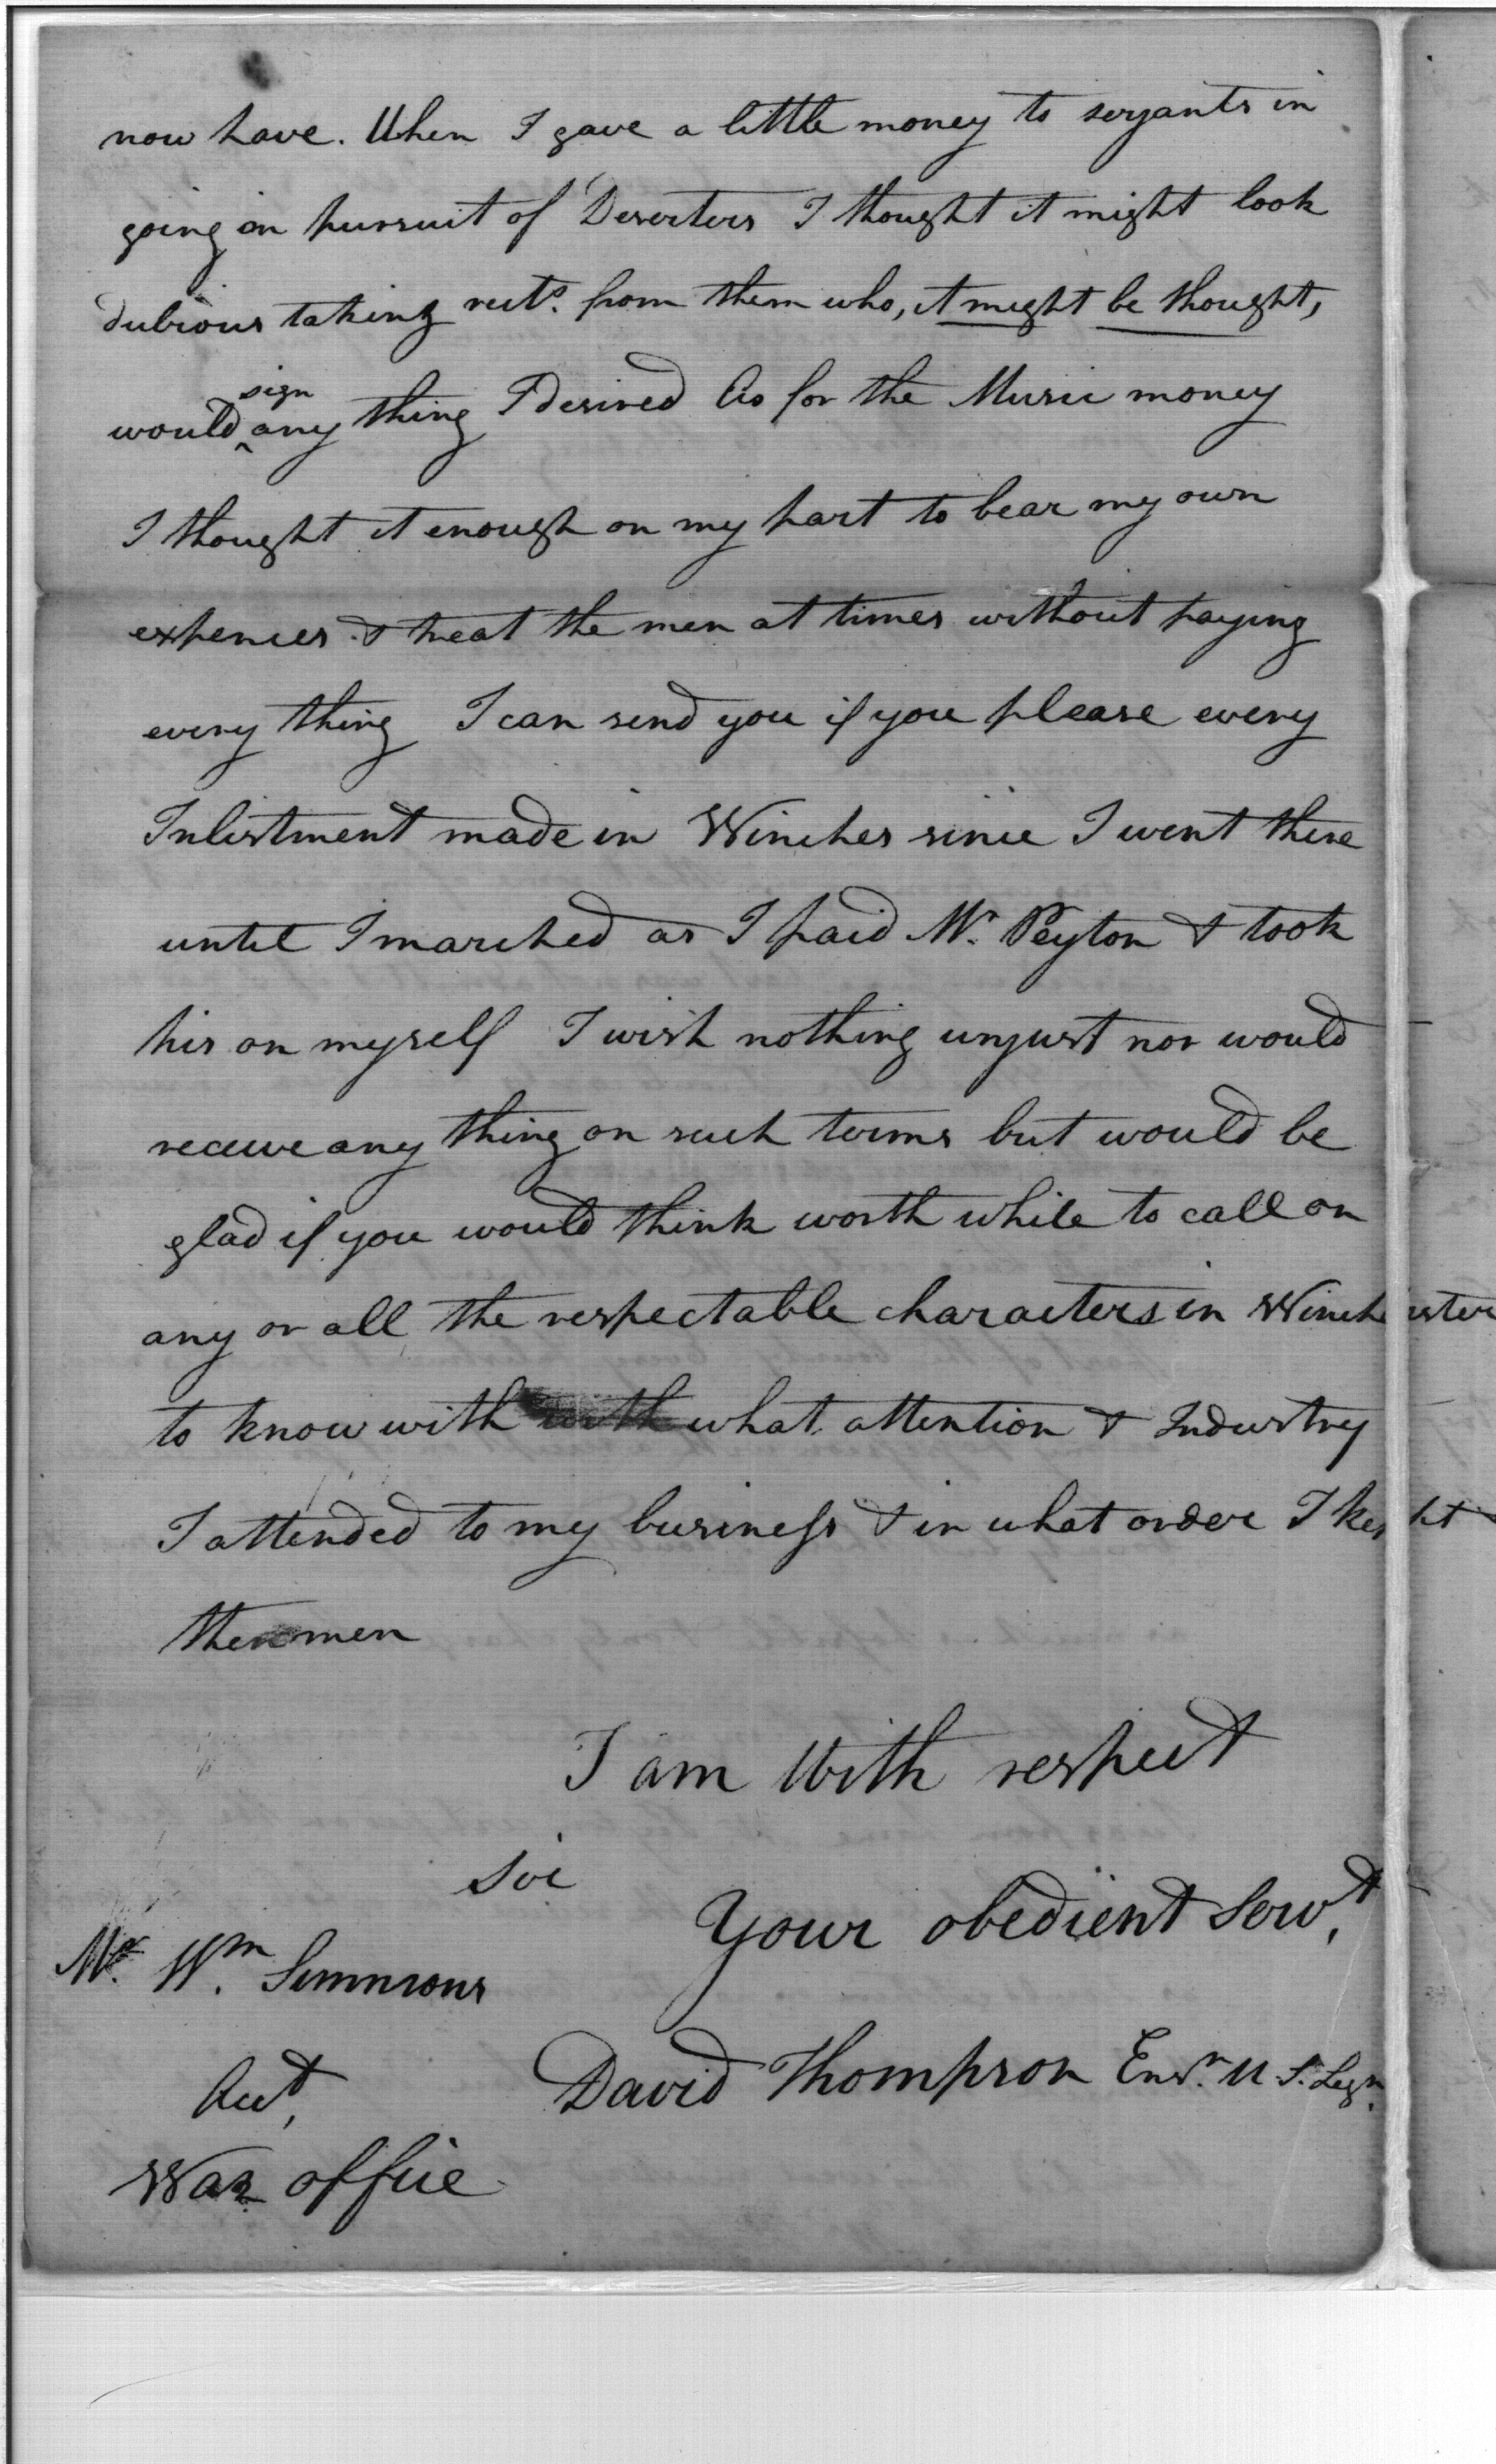 now have. When I gave a little money to serjants in
going in pursuit of Deserters I thought it might look
dubious taking rects. from them who, it might be thought,
would sign any thing I desired As for the Music money
I thought it enough on my part to bear my own
expences & treat the men at times without paying
every thing I can send you if you please every
Inlistment made in Winches since I went there
until I marched as I paid Mr. Peyton & took
his on myself I wish nothing unjust nor would
receive any thing on such terms but would be
glad if you would think worth while to call on
any or all the respectable characters in Winchester
to know with with what attention & Industry
I attended to my business & in what order I kept
the men
I am With respect
Sir
Your obedient Servt,
Mr. Wm. Simmons
David Thompson Ensn. U. S. Legn.
Acct,
War office